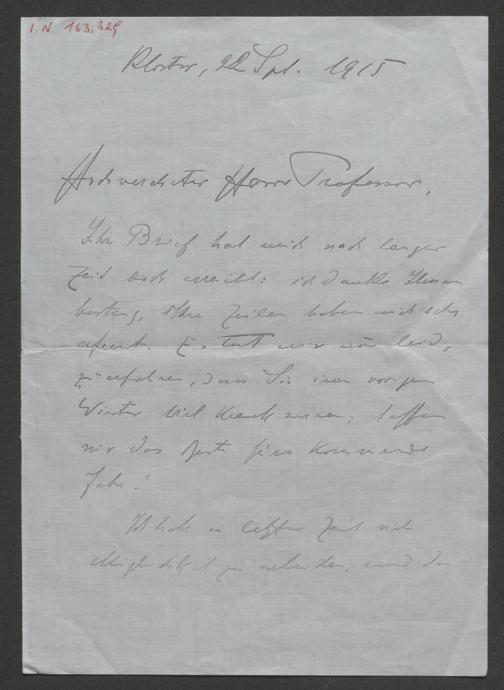 I. N. 163.325
Kloster, 22 Spt. 1915
Hochverehrter Herr Professor,
Ihr Brief hat mich nach langer
Zeit doch erreicht: ich danke Ihnen
bestens, Ihre Zeilen haben mich sehr
erfreut. Es tut mir nur leid,
zu erfahren, dass Sie im vorigen
Winter viel krank waren; hoffen
wir das Beste fürs kommende
Jahr!
Ich habe in letzter Zeit viel
Möglichkeit zu arbeiten, und da